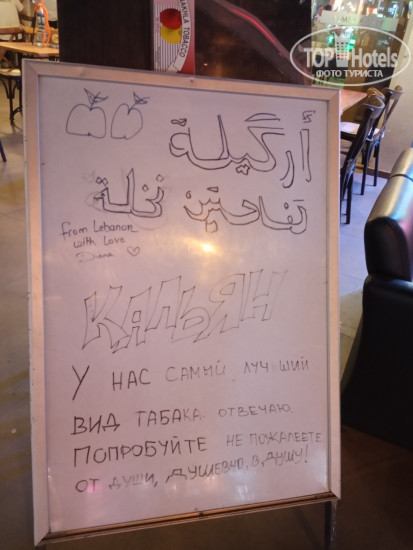 TOP Hotels
ФОТО ТУРИСТА
NAKHLA TOBACCO
أرگيلة
تفاحتين نخلة
from Lebanon
with Love
Diana
КАЛЬЯН
У НАС САМЫЙ ЛУЧШИЙ
ВИД ТАБАКА. ОТВЕЧАЮ.
ПОПРОБУЙТЕ НЕ ПОЖАЛЕЕТЕ
ОТ ДУШИ, ДУШЕВНО, В ДУШУ!